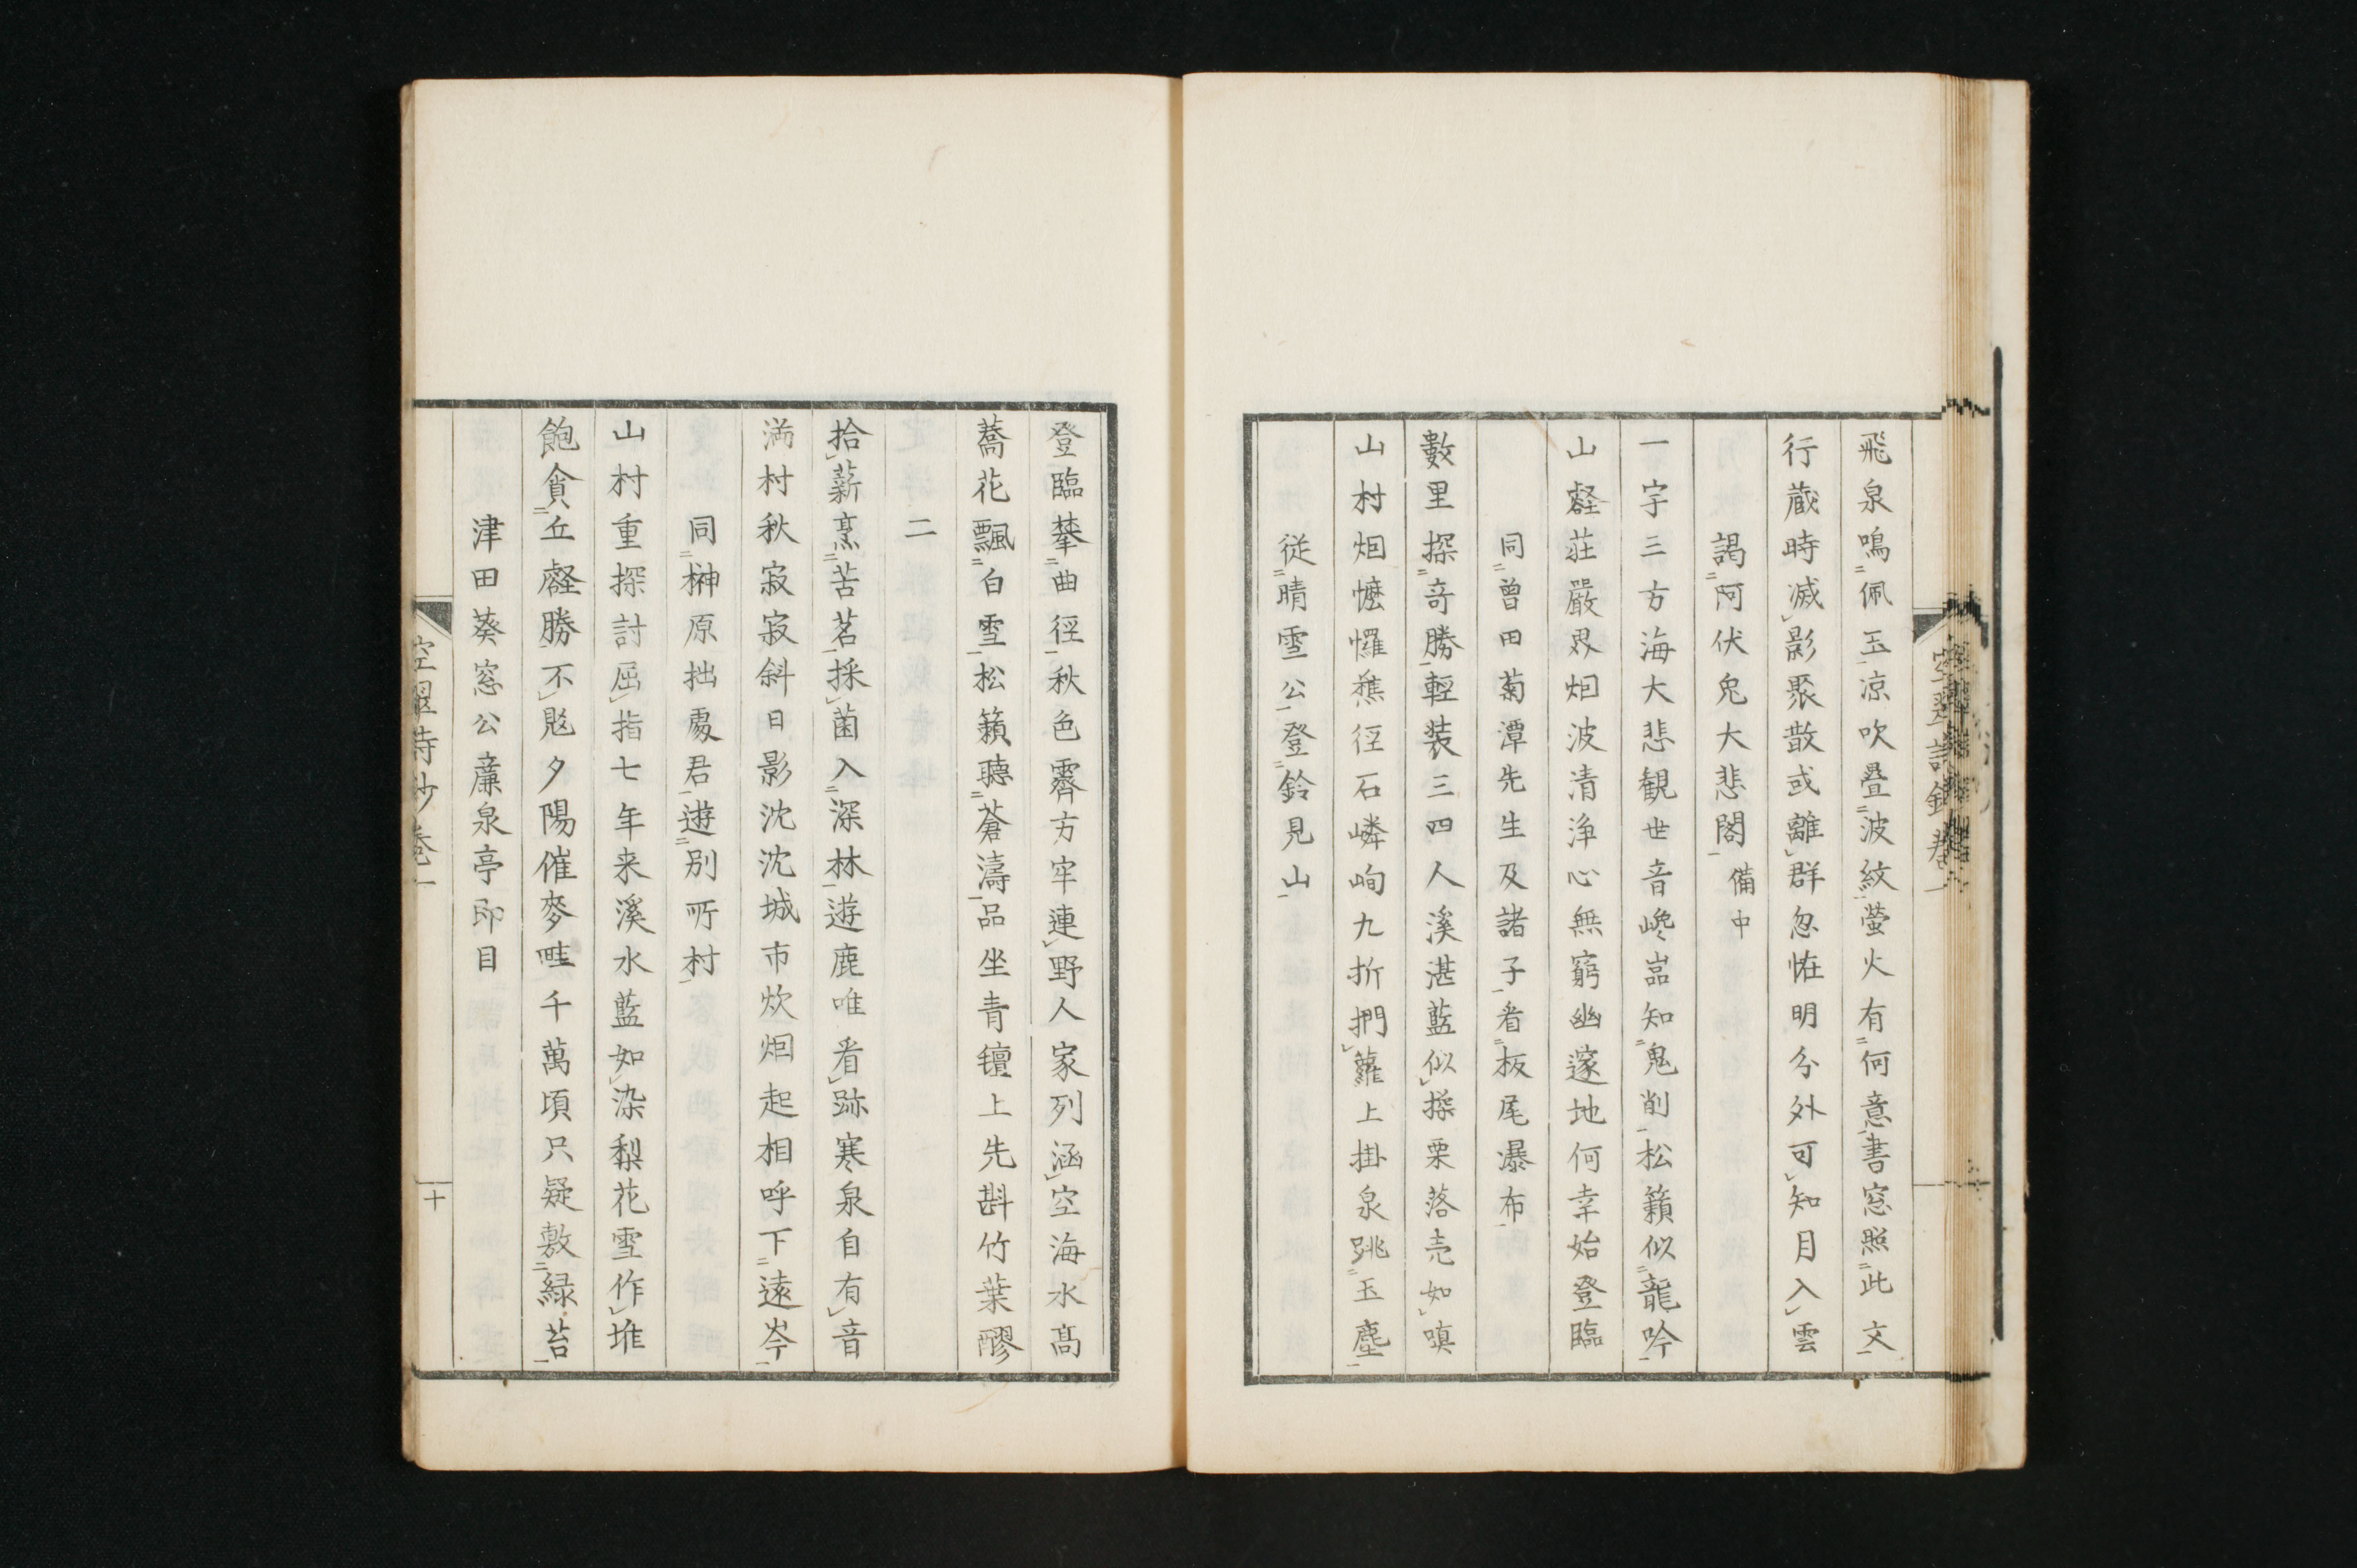 飛泉鳴佩玉涼吹疊波紋螢火有何意書窓照此文
行蔵時滅影聚散或離群忽恠明分外可知月入雲
謁阿伏兎大悲閣 備中
一宇三方海大悲観世音巉嵓知鬼削松籟似龍吟
山壑荘嚴界烟波清浄心無窮幽邃地何幸始登臨
同曽田菊潭先生及諸子看板尾瀑布
數里探奇勝輕装三四人溪湛藍似搽栗落売如嗔
山村烟幰㦬樵径石嶙峋九折捫蘿上掛泉跳玉塵
従晴雪公登鈴見山
登臨攀曲径秋色霽方牢連野人家列涵空海水髙
蕎花飄白雪松籟聴蒼濤品坐青氊上先斟竹葉醪
二
拾薪烹苦茗採菌入深林遊鹿唯看跡寒泉自有音
満村秋寂寂斜日影沈沈城市炊烟起相呼下遠岑
同榊原拙處君遊別所村
山村重探討屈指七年来溪水藍如染梨花雪作堆
飽貪丘壑勝不覐夕陽催麥畦千萬頃只疑敷緑苔
津田葵窓公㢘泉亭即目
空翠詩鈔巻一
十